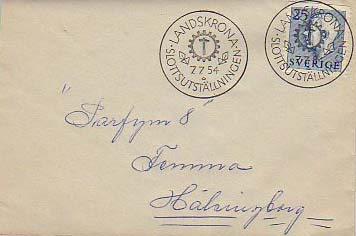 LANDSKRONA
SLOTTSUTSTÄLLNINGEN
7.7.54
LANDSKRONA
SLOTTSUTSTÄLLNINGEN
25
SVERIGE
"Parfym 8"
Femma
Hälsingborg